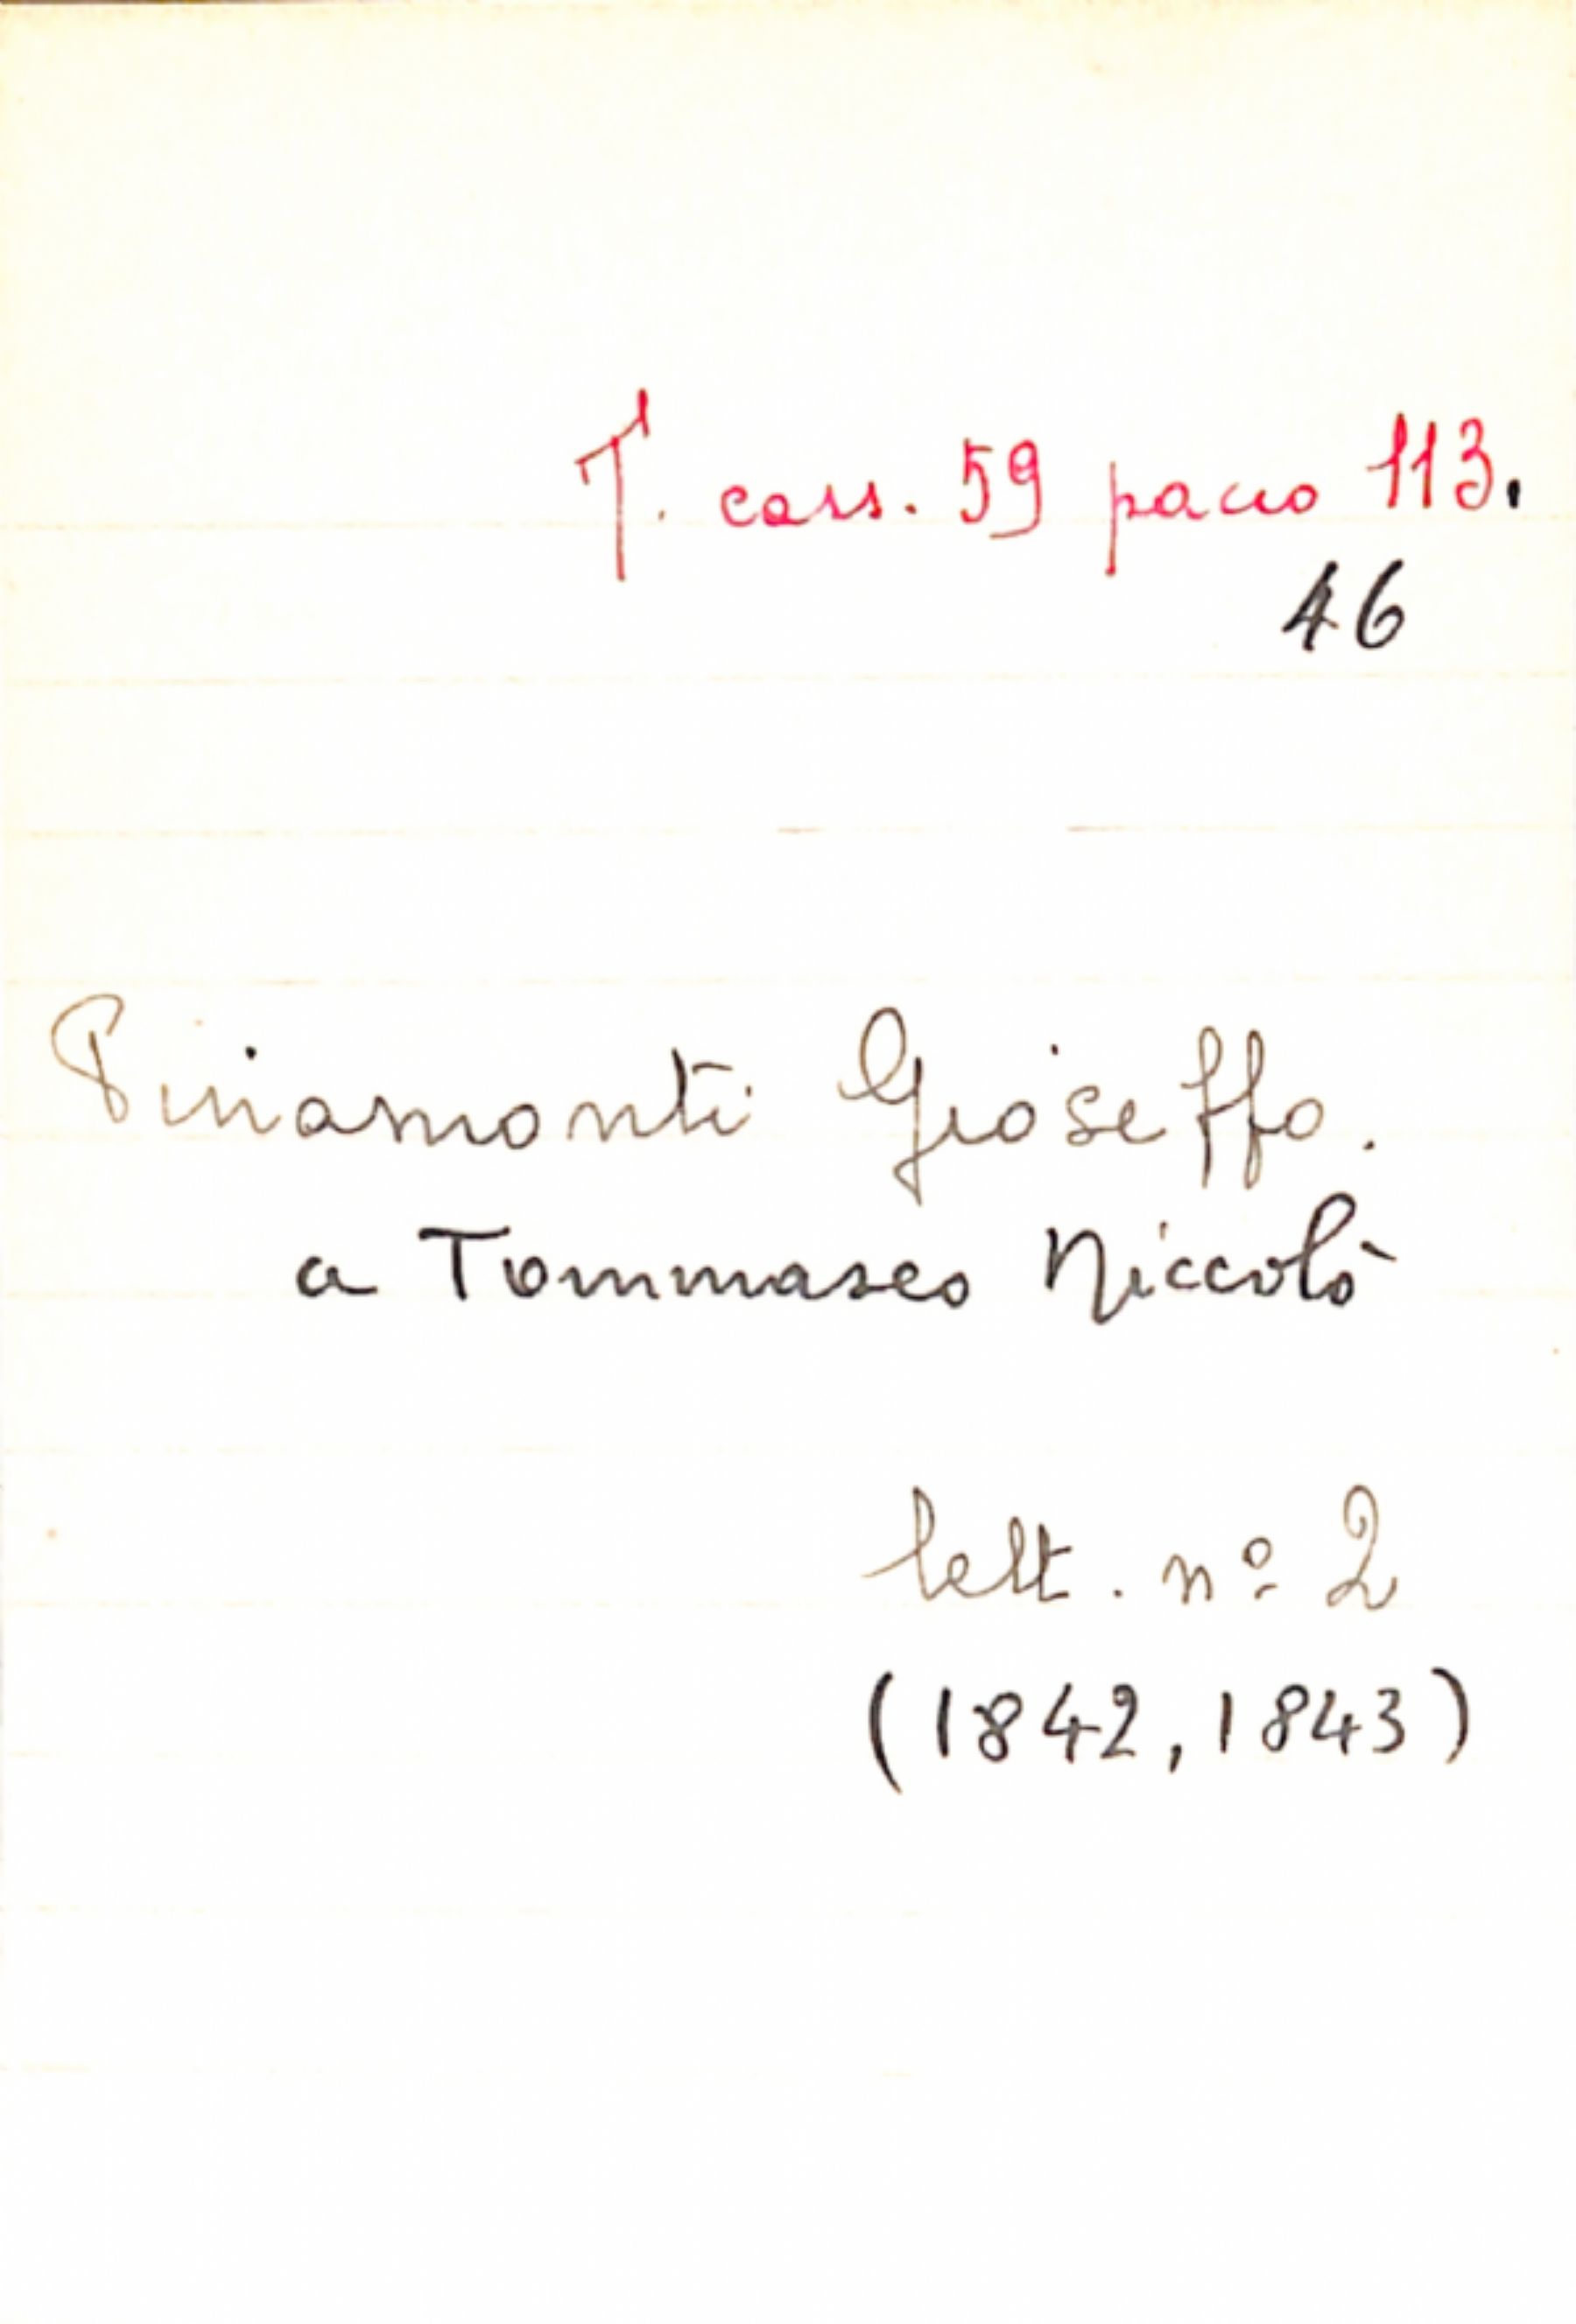 T. cass. 59 pacco 113.
46
Pinamonti Gioseffo.
a Tommaseo Niccolò
lett. nº 2
(1842, 1843)